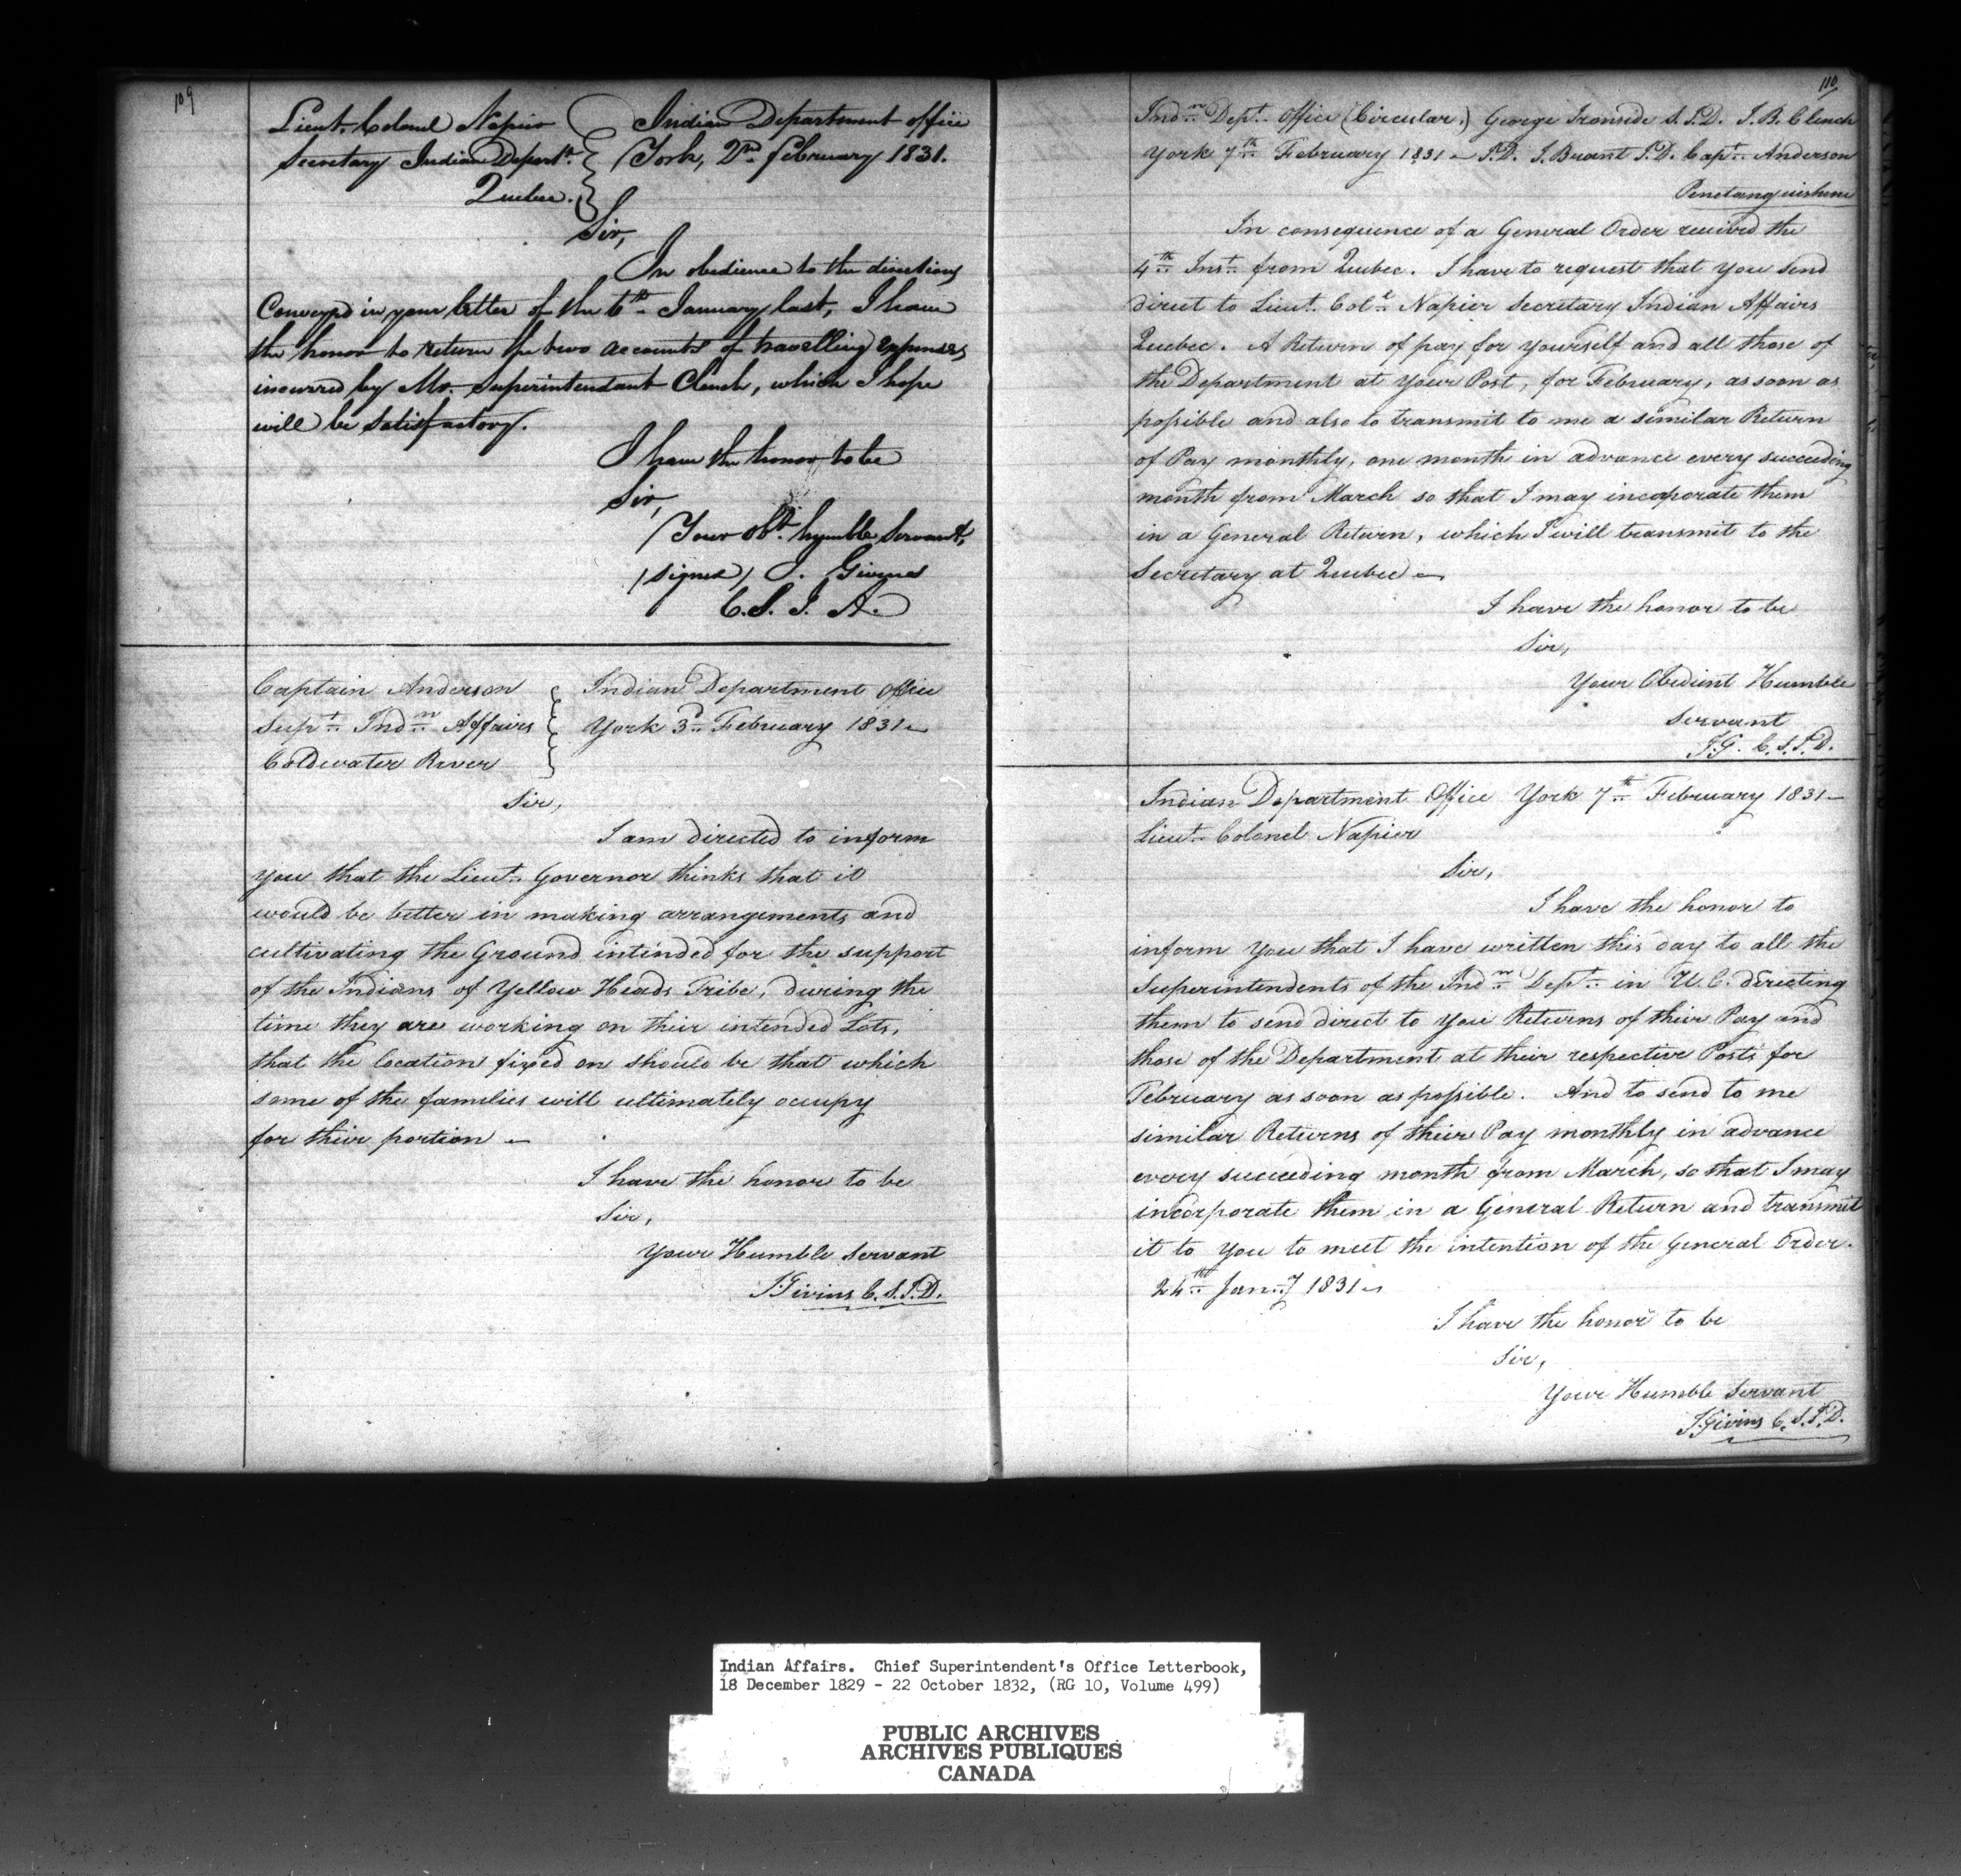 109
Lieut. Colonel Napier
Secretary Indian Depart.t
Quebec.
Indian Department office
York, 2nd february 1831.
Sir,
In obedience to the directions
Conveyed in your letter of the 6th January last, I have
the honor to return the two accounts of travelling expenses
incurred by Mr. Superintendant Clench, which I hope
will be satisfactory.
I have the honor to be
Sir,
Your obt. humble servant,
(signed) J. Givins
C. S. I. A.
Captain Anderson
Supt. Indn. Affairs
Coldwater River
Indian Department Office
York 3d February 1831
Sir,
I am directed to inform
you that the Lieut. Governor thinks that it
would be better in making arrangements and
cultivating the Ground intended for the support
of the Indians of Yellow Heads Tribe, during the
time they are working on their intended Lots,
that the location fixed on should be that which
some of the families will ultimately occupy
for their portion –
I have the honor to be
Sir,
Your Humble Servant
J Givins C. S. I. D.
110
Indn. Dept. Office (Circular.) George Ironside S. I. D. J. B. Clench
York 7th February 1831 – I. D. J. Brant I. D. Capt. Anderson
Penetanguishene
In consequence of a General Order received the
4th Inst. from Quebec. I have to request that you send
direct to Lieut. Col. Napier Secretary Indian Affairs
Quebec. A Return of pay for yourself and all those of
the Department at your Post, for February, as soon as
possible and also to transmit to me a similar Return
of Pay monthly, one month in advance every succeeding
month from March so that I may incoporate them
in a General Return, which I will transmit to the
Secretary at Quebec –
I have the honor to be
Sir,
Your Obedient Humble
servant
J. G. C. S. I. D.
Indian Department Office York 7th February 1831 –
Lieut. Colonel Napier
Sir,
I have the honor to
inform you that I have written this day to all the
Superintendents of the Indn. Dept. in U. C. directing
them to send direct to you Returns of their Pay and
those of the Department at their respective Posts for
February as soon as possible. And to send to me
similar Returns of their Pay monthly in advance
every succeeding month from March, so that I may
incorporate them in a General Return and transmit
it to you to meet the intention of the General Order.
24th Jany 1831 –
I have the honor to be
Sir,
Your Humble Servant
J Givins C. S. I. D.
Indian Affairs. Chief Superintendent's Office Letterbook,
18 December 1829 - 22 October 1832, (RG 10, Volume 499)
PUBLIC ARCHIVES
ARCHIVES PUBLIQUES
CANADA